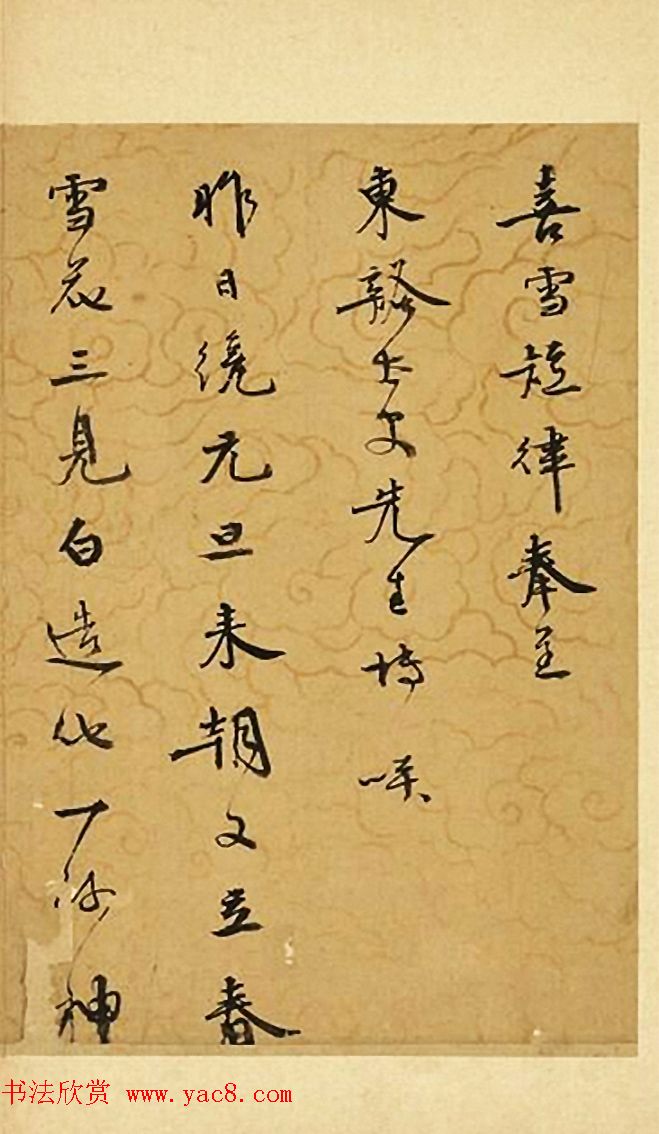 喜雪短律奉呈
東谿士文先生博咲
昨日繞元旦來朝又立春
雪花三見白造化一何神
书法欣赏 www.yac8.com